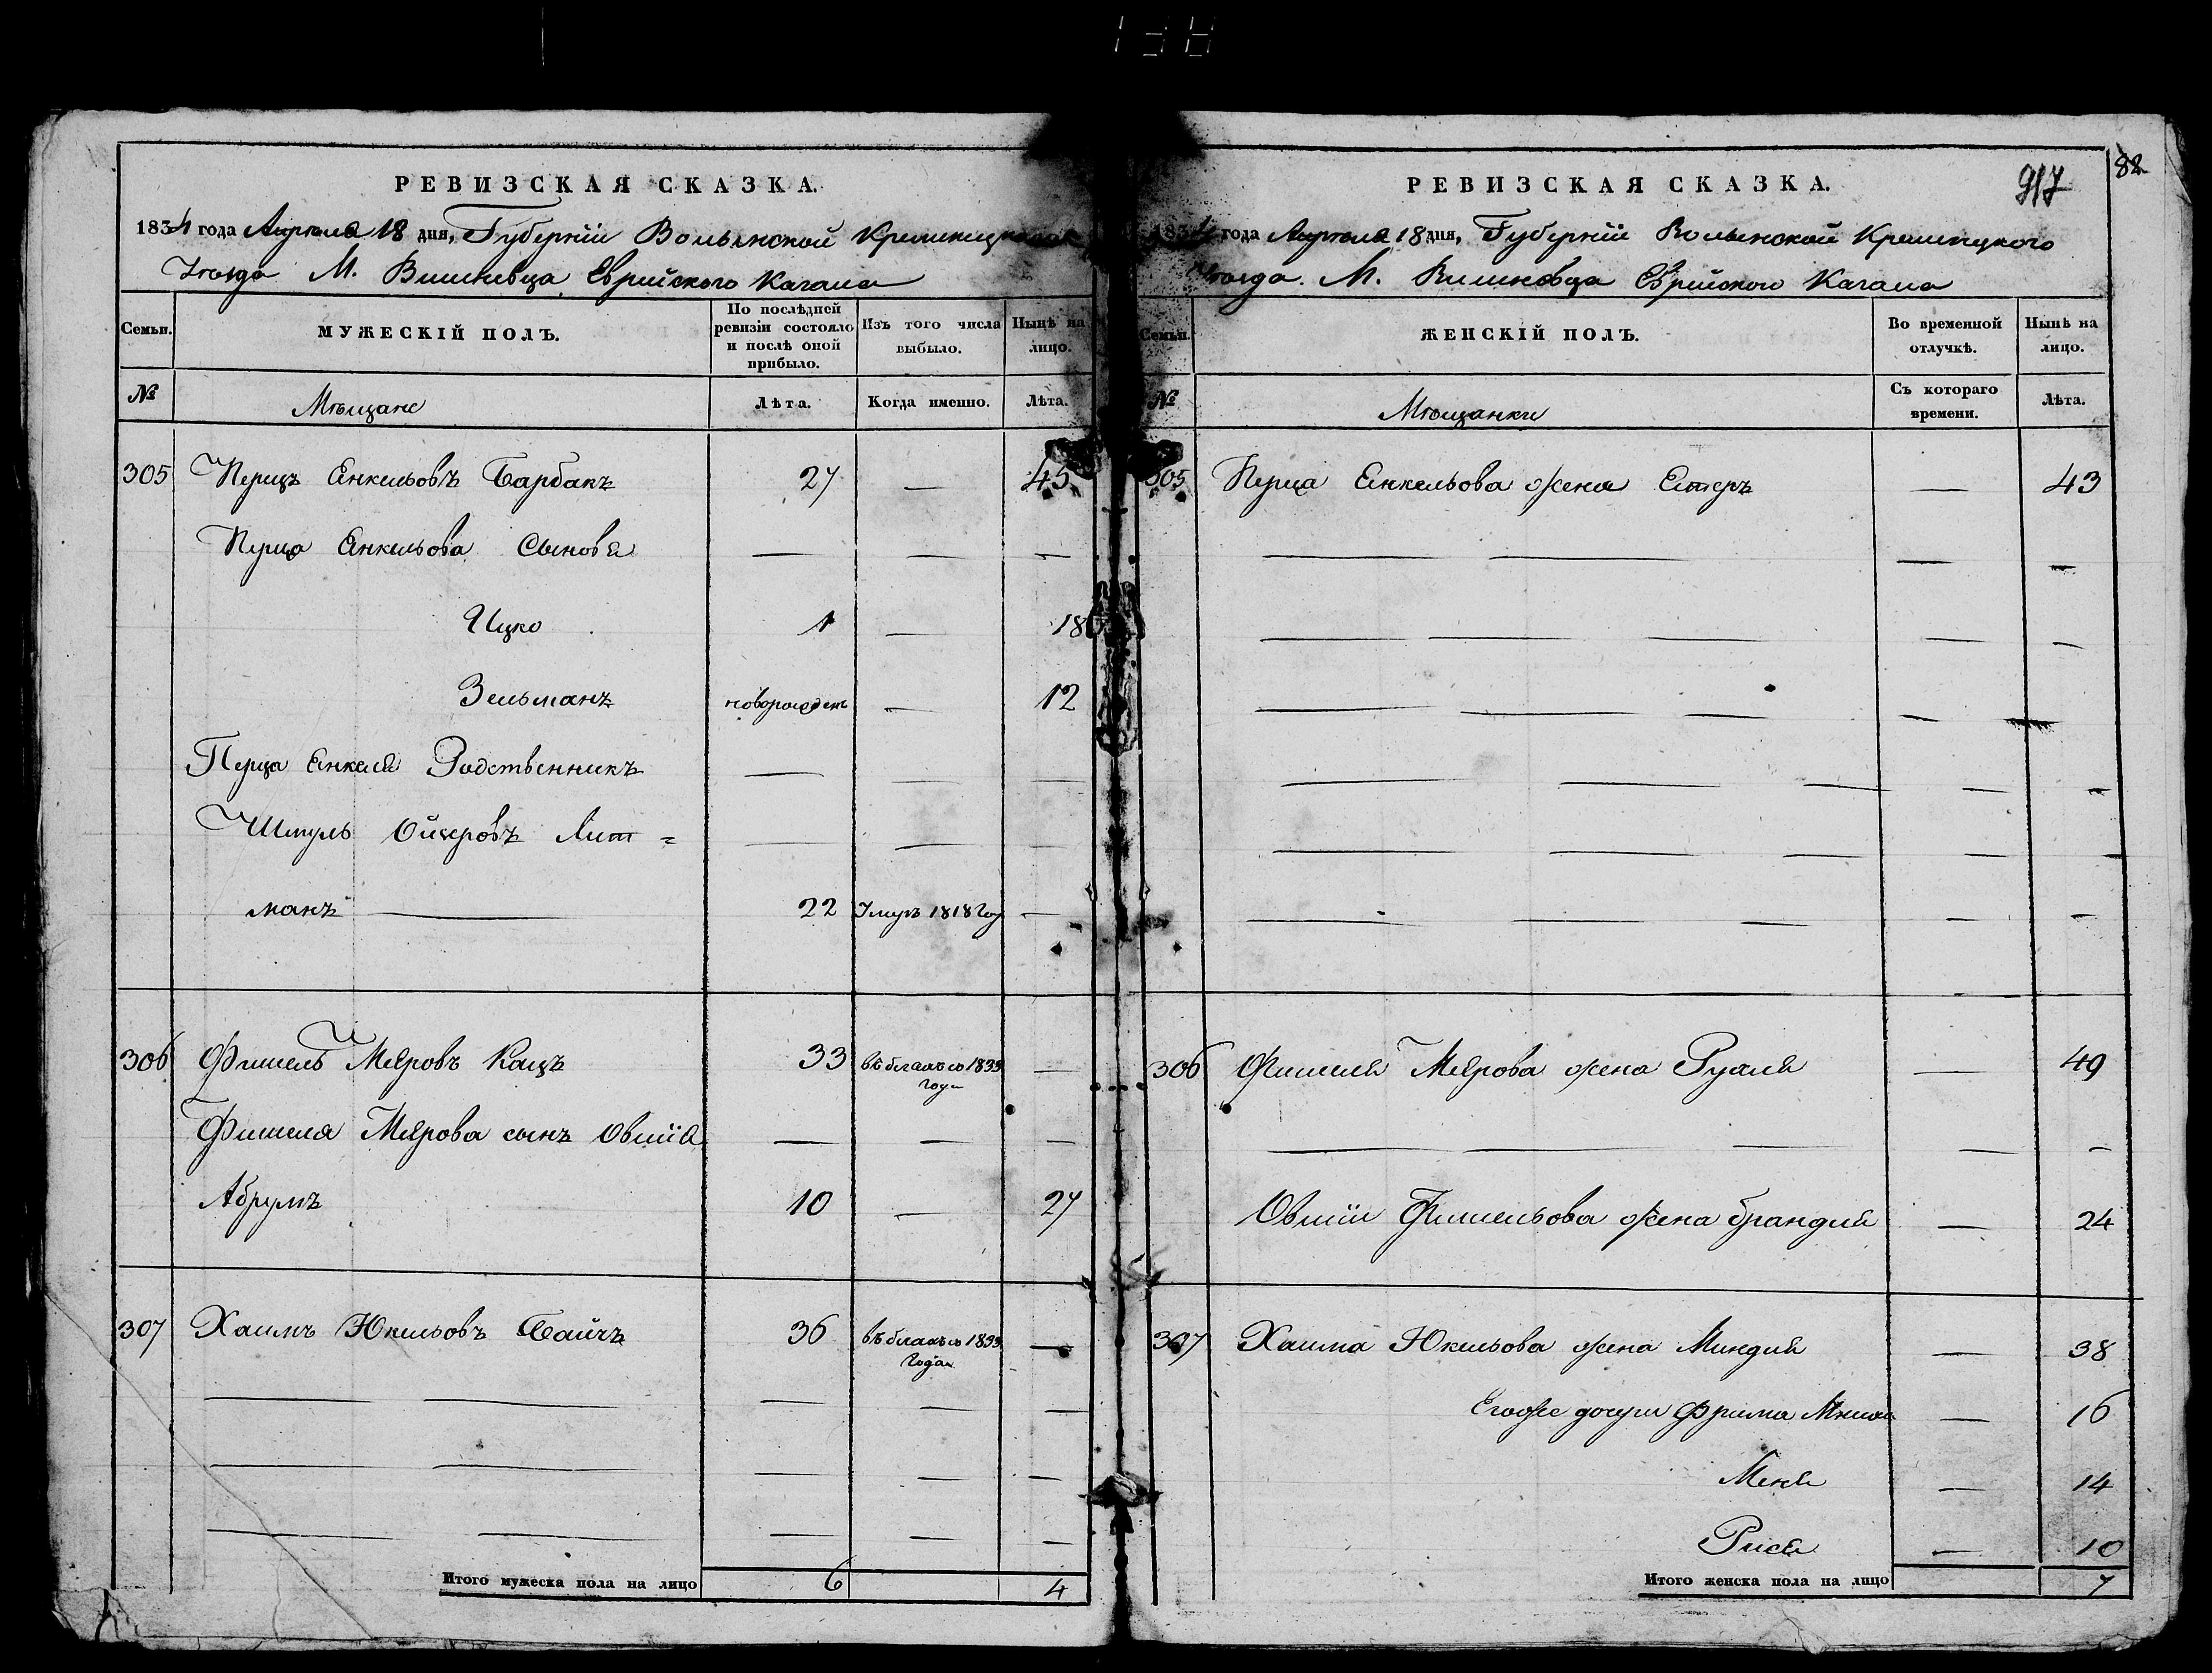 917
82
РЕВИЗСКАЯ СКАЗКА.
1834 года Апреля 18 дня, Губерніи Волынской Кременецкаго
Уѣзда М. Вишневца Еврейского Кагала
Семьи.
МУЖЕСКІЙ ПОЛЪ.
По послѣдней ревизіи состояло и послѣ оной прибыло.
Изъ того числа выбыло.
Нынѣ на лицо.
№
Мѣщане
Лѣта.
Когда именно.
Лѣта.
305 Перецъ Енкельовъ Барбакъ 27 — 45
Перца Енкельова Сыновя — — —
Ицко 1 — 18
Зельманъ новорожденъ — 12
Перца Енкеля Родственникъ — — —
Шмуль Ойзеровъ Лит= — — —
манъ — 22 Умеръ 1818 Году —
306 Фишель Меяровъ Кацъ 33 въ бегахъ съ 1833 —
года
Фишеля Меярова сынъ Овшія — — —
Абрумъ 10 — 27
307 Хаимъ Юкельовъ 36 въ бегахъ съ 1833 —
Года
Итого мужеска пола на лицо 6 4
РЕВИЗСКАЯ СКАЗКА.
1834 года Апреля 18 дня, Губерніи Волынской Кременецкого
Уѣзда М. Вишневца Еврейского Кагала
Семьи.
ЖЕНСКІЙ ПОЛЪ.
Во временной отлучкѣ.
Нынѣ на лицо.
№
Мѣщанки
Съ котораго времени.
Лѣта.
305 Перца Енкельова жена Естеръ — 43
306 Фишеля Меярова жена Руаля — 49
Овшіи Фишельова жена Брандля — 24
307 Хаима Юкельова жена Миндля — 38
Егоже дочери Фрима — 16
Меня — 14
Рися — 10
Итого женска пола на лицо 7